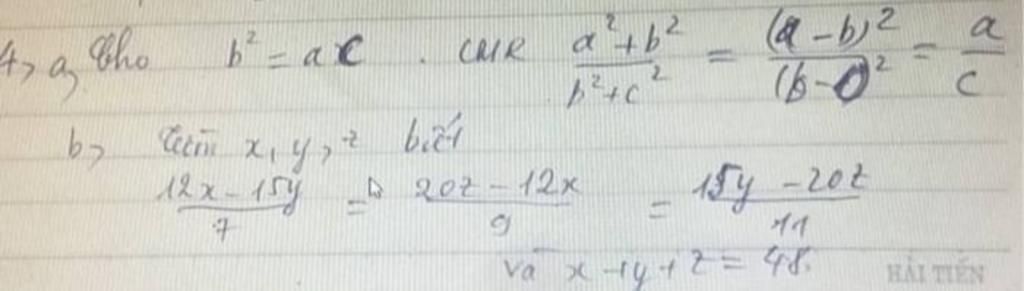 4, a, Cho b² = ac . CMR (a² + b²)/(b² + c²) = (a - b)²/(b - c)² = a/c
b, Tìm x, y, z biết
(12x - 15y)/7 = (20z - 12x)/9 = (15y - 20z)/11
và x + y + z = 48.
HẢI TIẾN